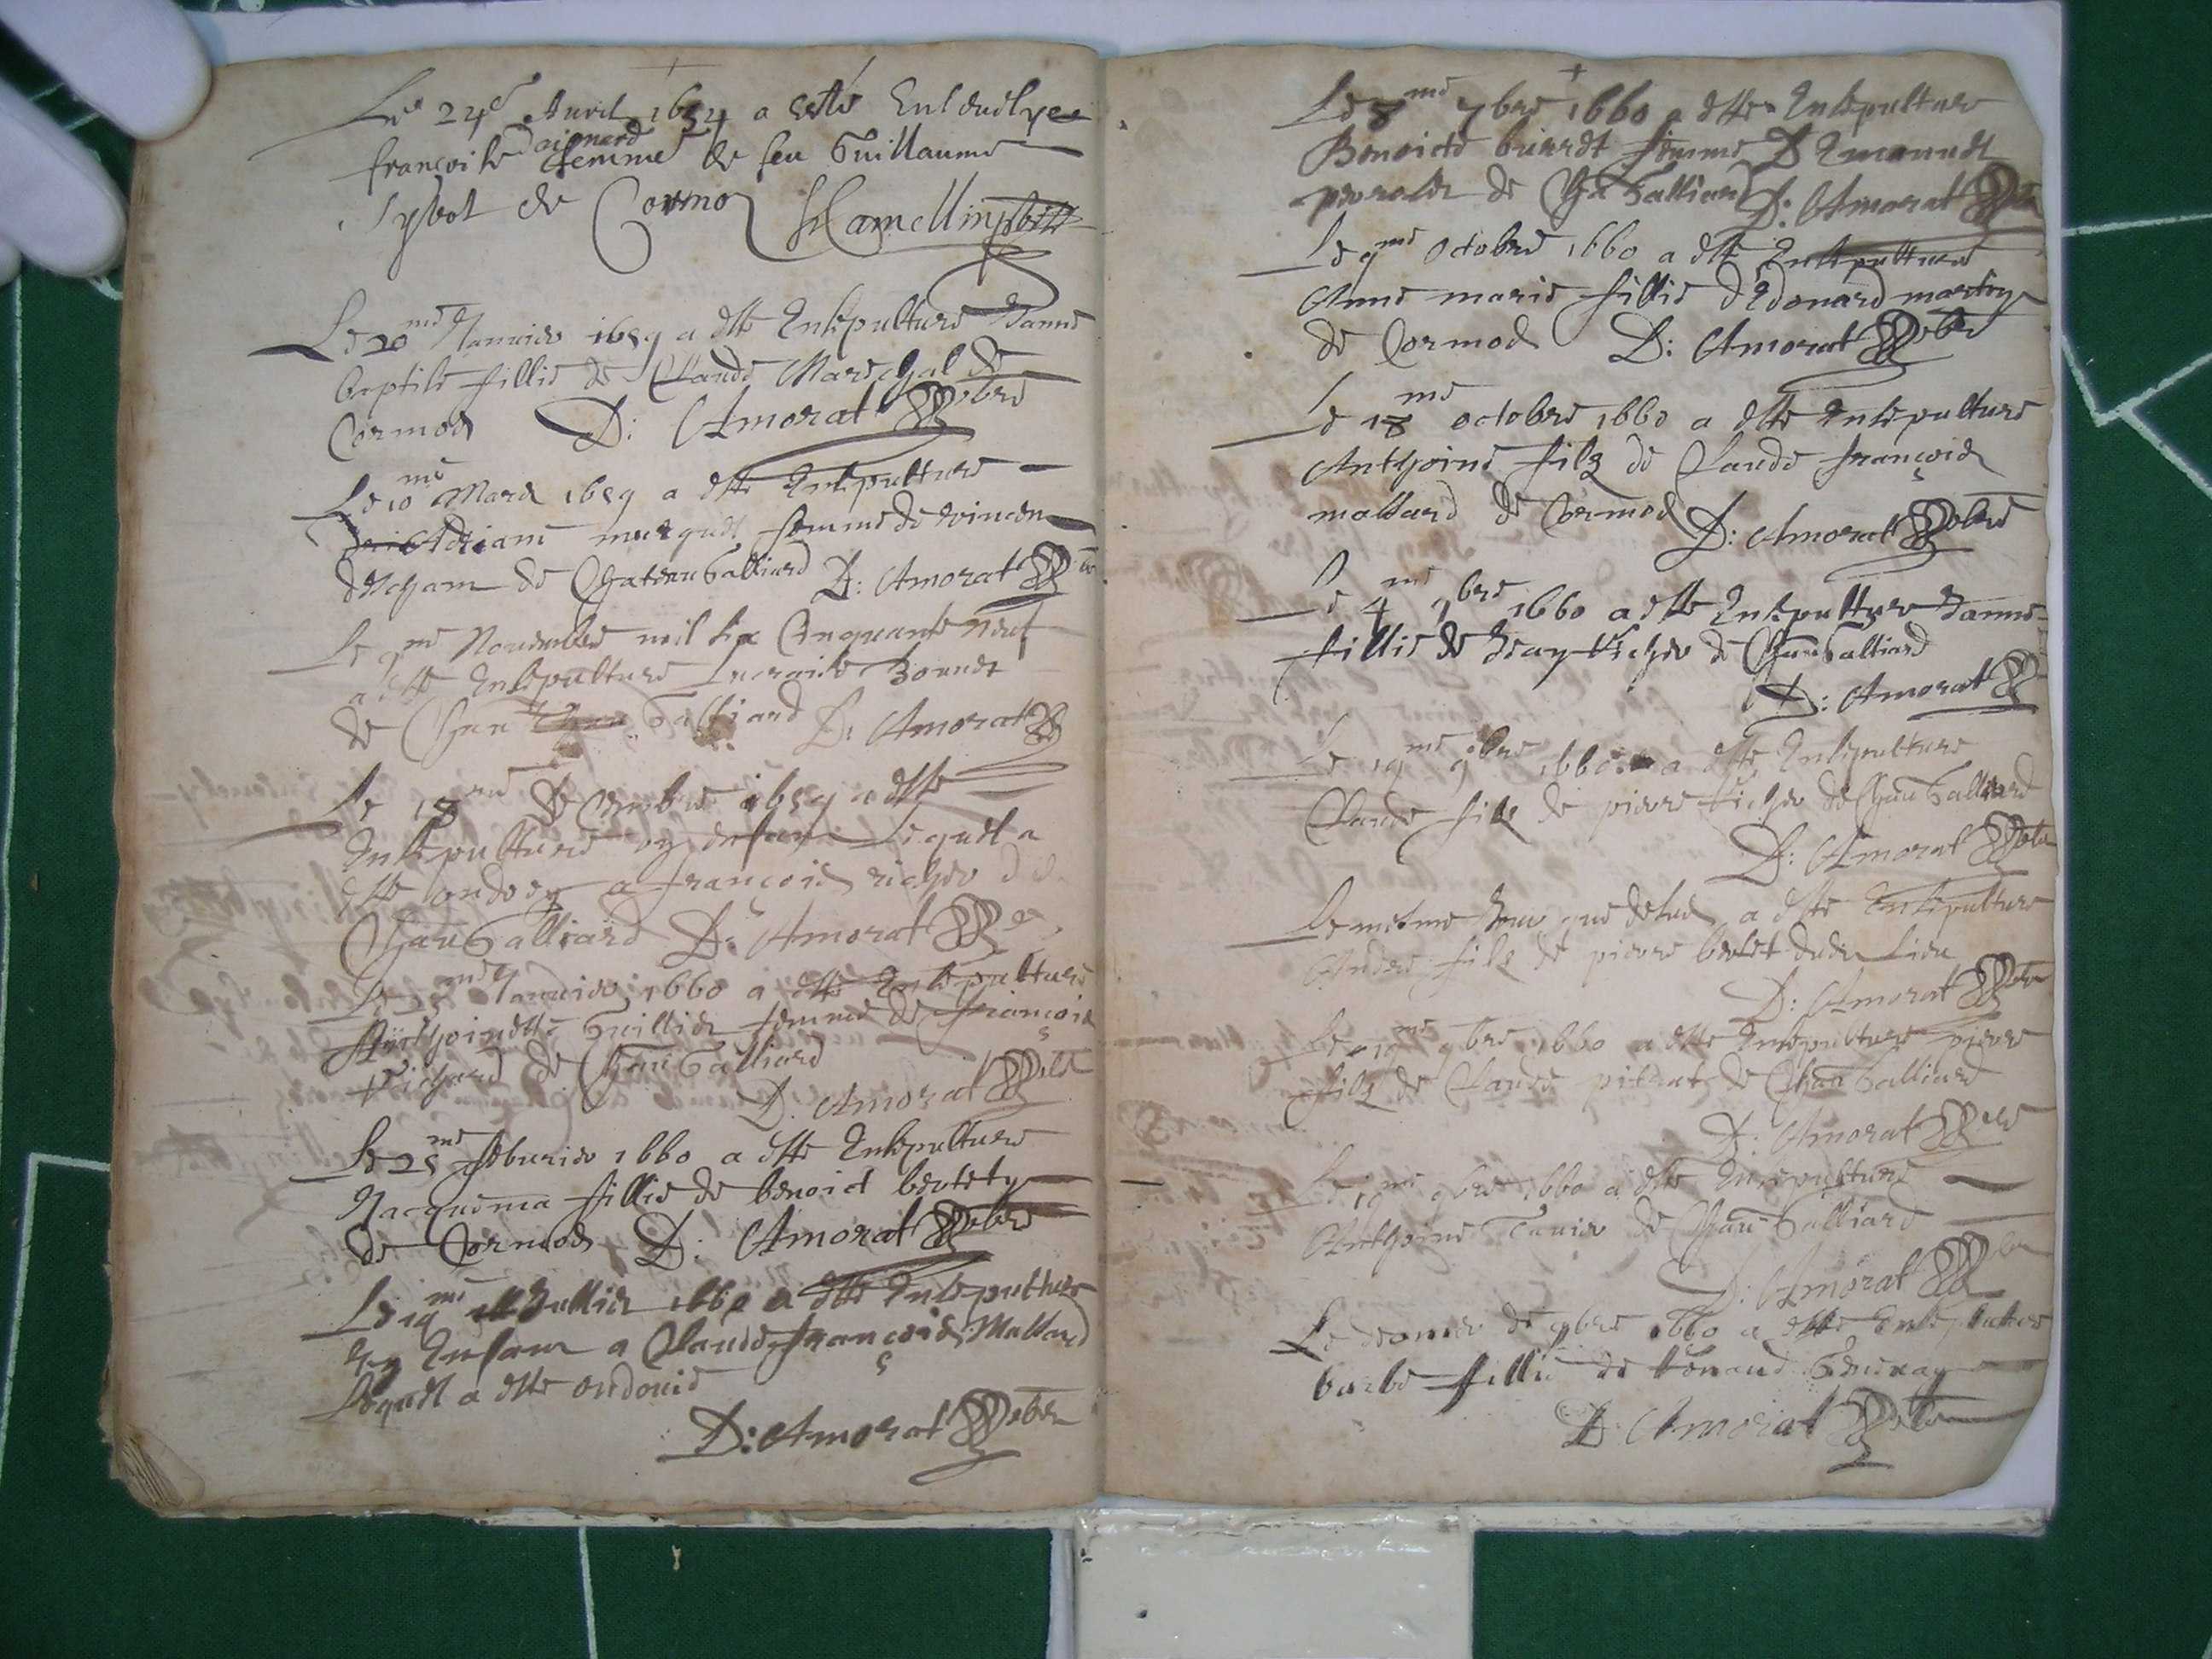 Le 24e Avril 1654 a esté Ensevelye
françoise Daionard femme de feu Guillaume
Sybot de Cormoz Hamellin pbtre
Le 20me Janvier 1659 a esté Ensepulture Janne
baptise fillie de Claude Mareschal de
Cormos D: Amorat pbre
Le 10me Mars 1659 a esté Ensepulture
Adriane femme de vincen
de Chateau Galliard D: Amorat
Le 9me Novembre mil six Cinquante neuf
a esté Ensepulture
de Chau Galliard D: Amorat
Le 18me Decembre 1659 a esté
Ensepulture ung enfan Lequel a
esté ondoey a françois richer de
Chau Galliard D: Amorat
Le 25me Janvier 1660 a esté Ensepulture
Anthoinette Guillier femme de françois
Richard de Chau Galliard
D. Amorat
Le 25me feburier 1660 a esté Ensepulture
Jacquema fillie de benoict
de Cormos D: Amorat pbre
Le 19me Jullier 1660 a esté Ensepulture
Ung Enfant a Claude françois Mallard
Lequel a esté ondoié
D: Amorat pbre
Le 8me 7bre 1660 a esté Ensepulture
Benoicte buirdt femme D Emanuel
de Chau Galliard D: Amorat
Le 9me octobre 1660 a esté Ensepulture
Anne marie fillie d Edouard martin
de Cormos D: Amorat pbre
Le 18me octobre 1660 a esté Ensepulture
Anthoine filz de Claude françois
mallard de Cormos
D: Amorat pbre
Le 4me 9bre 1660 a esté Ensepulture Janne
fillie de Jean Richer de Chau Galliard
D: Amorat
Le 19me 9bre 1660 a esté Ensepulture
Claude filz de pierre Richer de Chau Galliard
D: Amorat pbre
Le mesme Jour que desus a esté Ensepulture
Andre filz de pierre bertet dudit Lieu
D: Amorat pbre
Le 19me 9bre 1660 a esté Ensepulture pierre
filz de Claude pitrat de Chau Galliard
D: Amorat pbre
Le 19me 9bre 1660 a esté Ensepulture
Anthoine de Chau Galliard
D: Amorat
Le dernier de 9bre 1660 a esté Ensepulture
barbe fillie de
D: Amorat